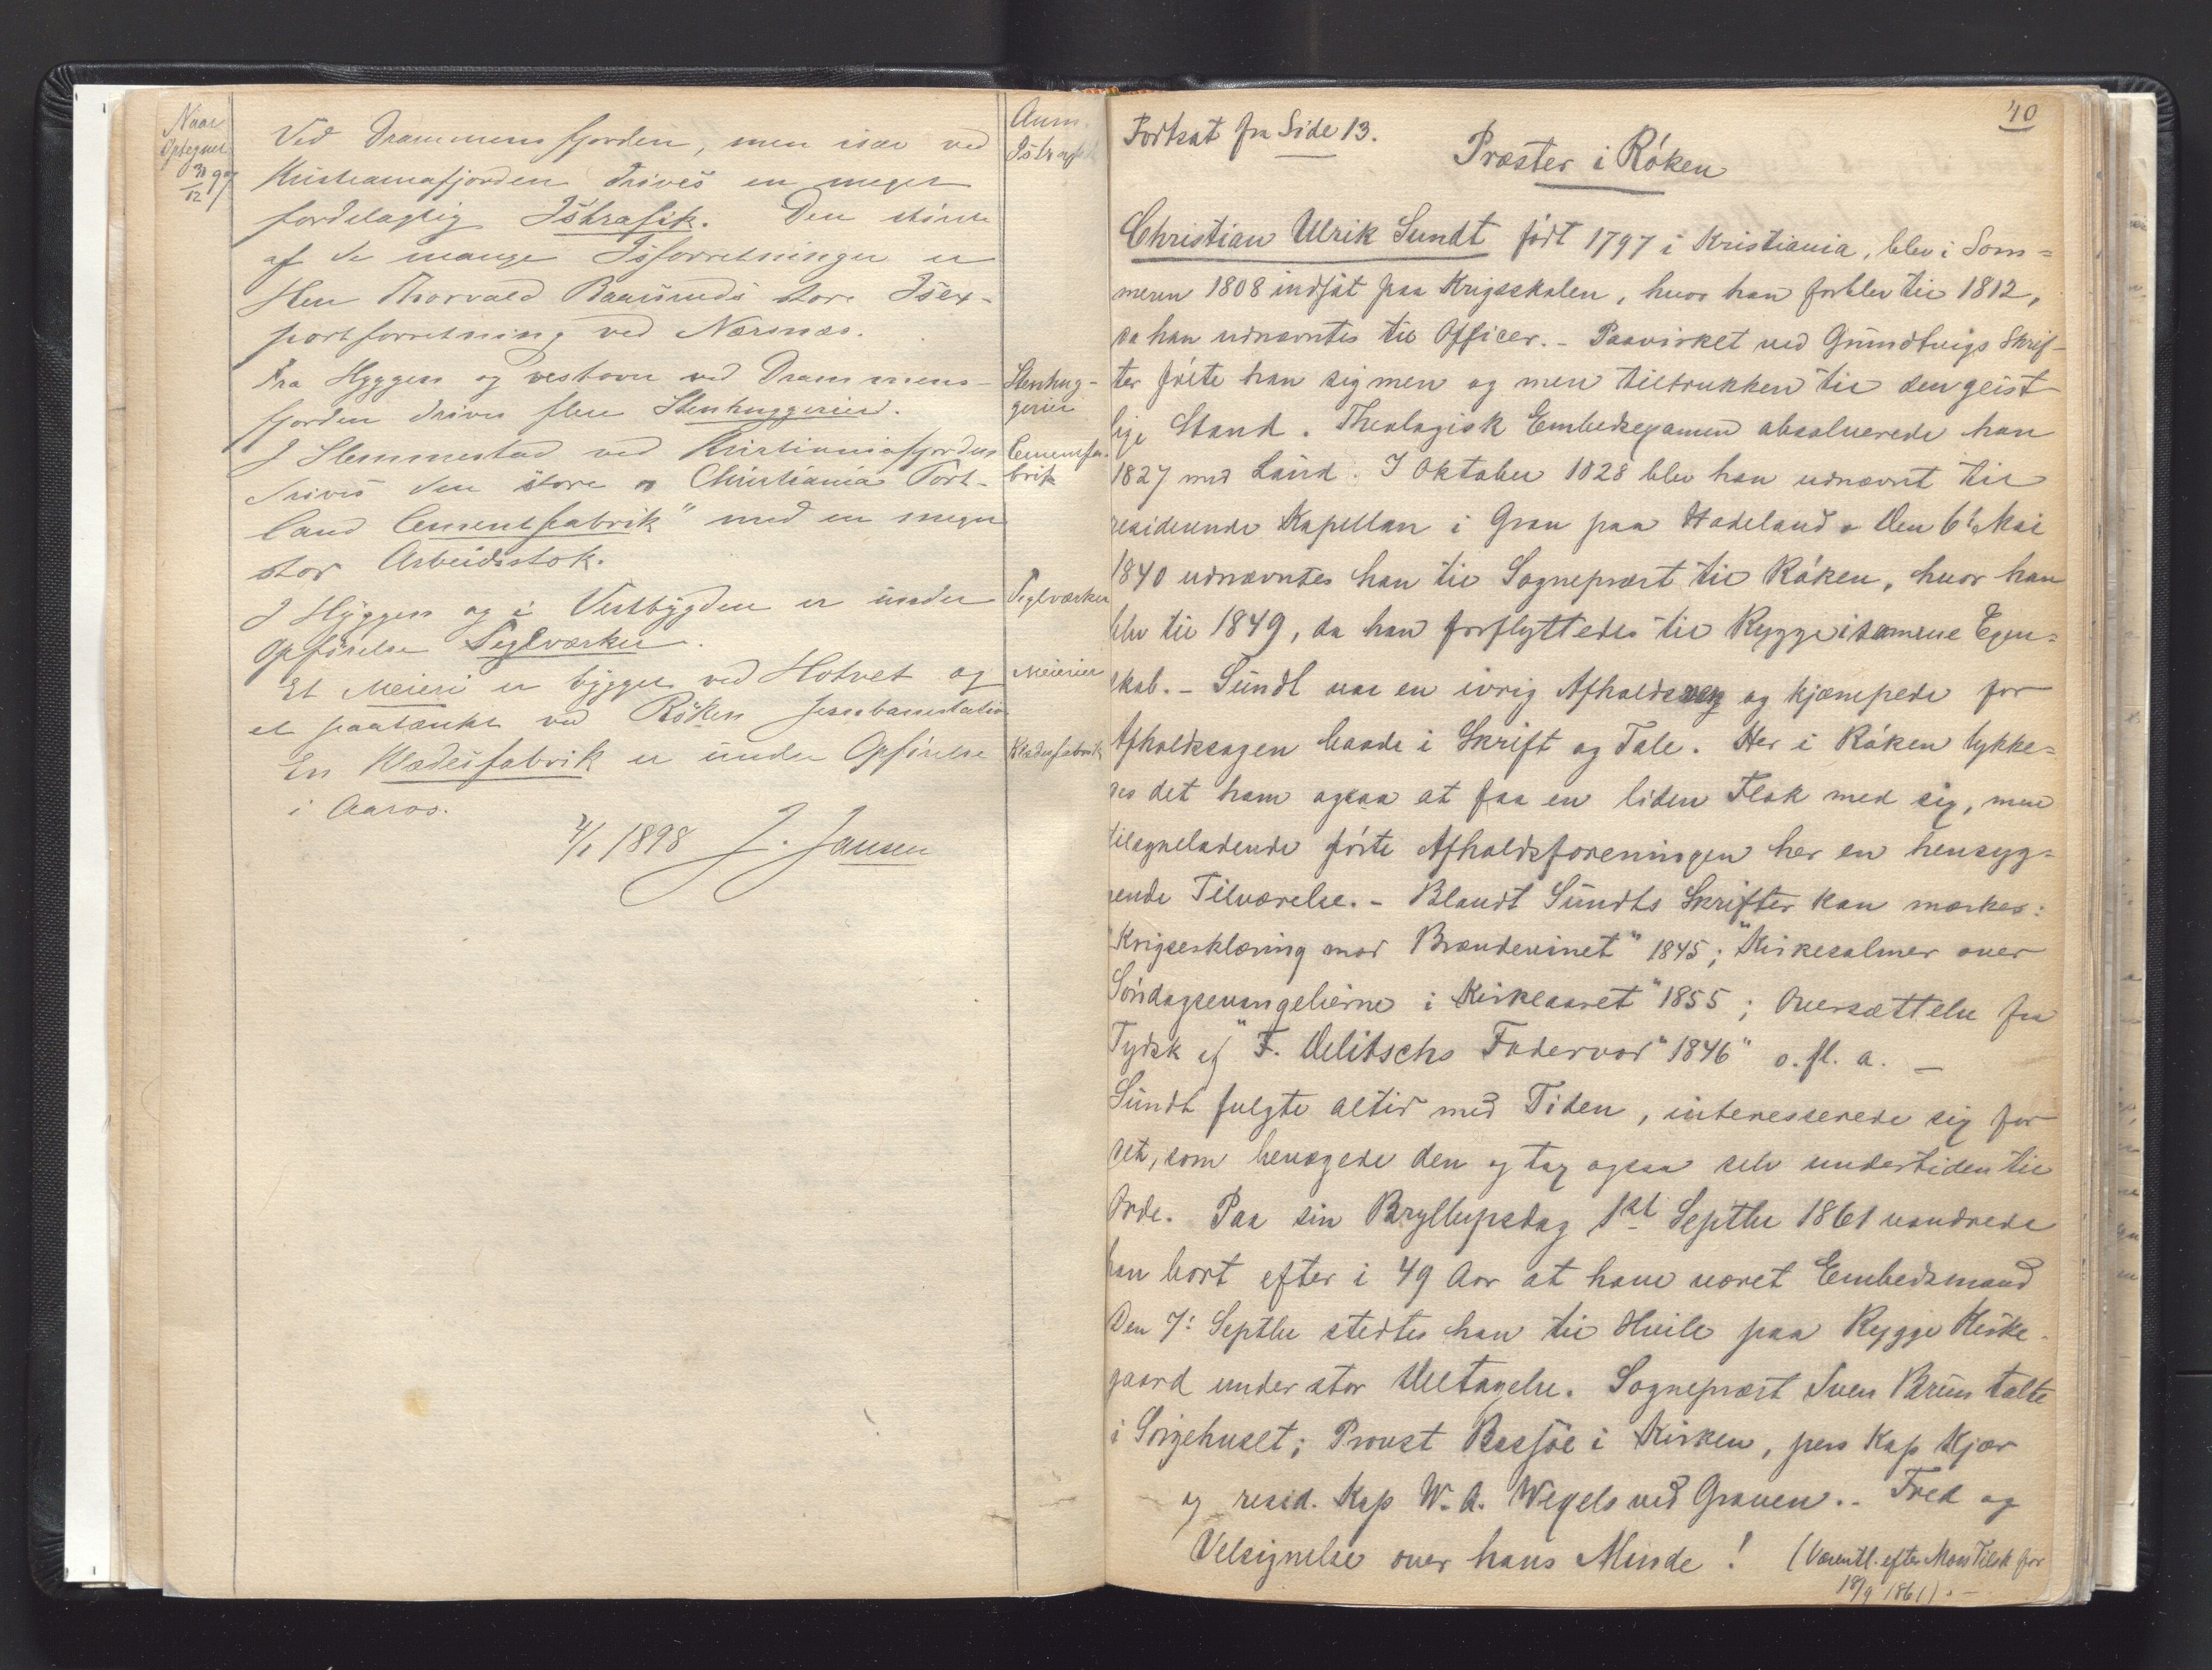 Naar
Optegnet
31/12 97
Ved Drammensfjorden, men især ved
Kristianiafjorden drives en meget
fordelagtig Istrafik. Den største
af de mange Isforretninger er
Herr Thorvald Baarsruds store Isex-
portforretning ved Nærsnæs.
Fra Hyggen og vestover ved Drammens-
fjorden drives flere Stenhuggerier.
I Slemmestad ved Kristianiafjorden
drives den store "Christiania Port-
land Cementfabrik" med en meget
stor Arbeidsstok.
I Hyggen og i Vestbygden er under
Opførelse Teglværker.
Et Meieri er bygget ved Hotvet og
et paatænkt ved Røken Jernbanestation
En Klædesfabrik er under Opførelse
i Aaros.
4/1 1898 J. Jansen
Anm.
Istrafik
Stenhug-
gerier
Cementfa-
brik
Teglværker
Meierier
Klædesfabrik
40
Fortsat fra Side 13.
Præster i Røken
Christian Ulrik Sundt født 1797 i Kristiania, blev i Som=
meren 1808 indsat paa Krigsskolen, hvor han forblev til 1812,
da han udnævntes til Officer. - Paavirket ved Grundtvigs Skrif-
ter følte han sig mer og mer tiltrukken til den geist
lige Stand. Theologisk Embedsexamen absolverede han
1827 med Laud. I Oktober 1828 blev han udnævnt til
residerende Kapellan i Gran paa Hadeland. Den 6te Mai
1840 udnævntes han til Sogneprest til Røken, hvor han
blev til 1849, da han forflyttedes til Rygge i samme Egen=
skab. - Sundt var en ivrig Afholdsven og kjæmpede for
Afholdssagen baade i Skrift og Tale. Her i Røken lykke=
des det ham ogsaa at faa en liden Flok med sig, men
tilsyneladende førte Afholdsforeningen her en hensyg=
nende Tilværelse. - Blandt Sundts Skrifter kan mærkes:
"Krigserklæring mod Brændevinet" 1845; "Kirkesalmer over
Søndagsevangelierne i Kirkeaaret" 1855; Oversættelse fra
Tydsk af "F. Delitschs Fadervor" 1846" o. fl. a. -
Sundt fulgte altid med Tiden, interesserede sig for
det, som bevægede den og tog ogsaa selv undertiden til
Orde. Paa sin Bryllupsdag 1st Septbr 1861 vandrede
han bort efter i 49 Aar at have været Embedsmand
Den 7: Septbr stedtes han til Hvile paa Rygge Kirke-
gaard under stor Deltagelse. Sogneprest Sven Brun talte
i Sørgehuset; Provst Bassøe i Kirken, pers Kap Kjær
og resid. Kap W. A. Wexels ved Graven.- Fred og
Velsignelse over hans Minde! (Væsentl. efter Moss Tilsk for
18/9 1861). -